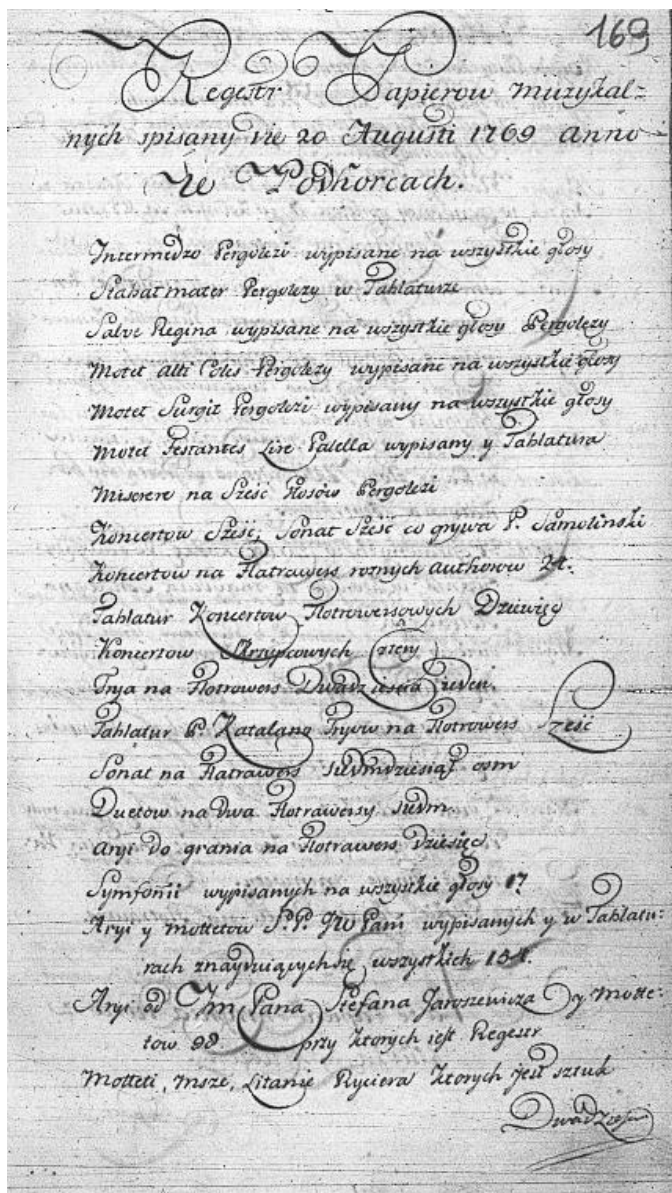 169
Regestr Papierow muzykal=
nych spisany die 20 Augusti 1769 anno
we Podhorcach.
Intermedzo Pergolezi wypisane na wszystkie głosy
Stabat mater Pergolezy w Tablaturze
Salve Regina wypisane na wszystkie głosy Pergolezy
Motet Alti Pergolezy wypisane na wszystkie głosy
Motet Surgit Pergolezi wypisany na wszystkie głosy
Motet Festantes Lire Palella wypisany y Tablatura
Miserere na Sześć Głosów Pergolezi
Koncertow Sześć, Sonat Sześć co grywa P. Samolinski
Koncertow na Flatrawers roznych authorow 24.
Tablatur Koncertow Flotrowersowych Dziewięć
Koncertow Skrzypcowych cztery
Trya na Flotrowers Dwadziescia Jeden.
Tablatur P. Katalano Tryow na Flotrowers Sześć
Sonat na Flatrawers siedmdziesiąt osm
Duetow na dwa Flotrawersy siedm
Aryi do grania na Flotrawers dziesięc
Symfonii wypisanych na wszystkie głosy 17
Aryi y mottetow S.P. Pani wypisanych y w Tablatu:
rach znayduiących się wszystkich 154.
Aryi od Jm Pana Stefana Jaroszewicza y Motte:
tow 98 przy ktorych iest Regestr
Motteti, Msze, Litanie Ryciera ktorych jest sztuk